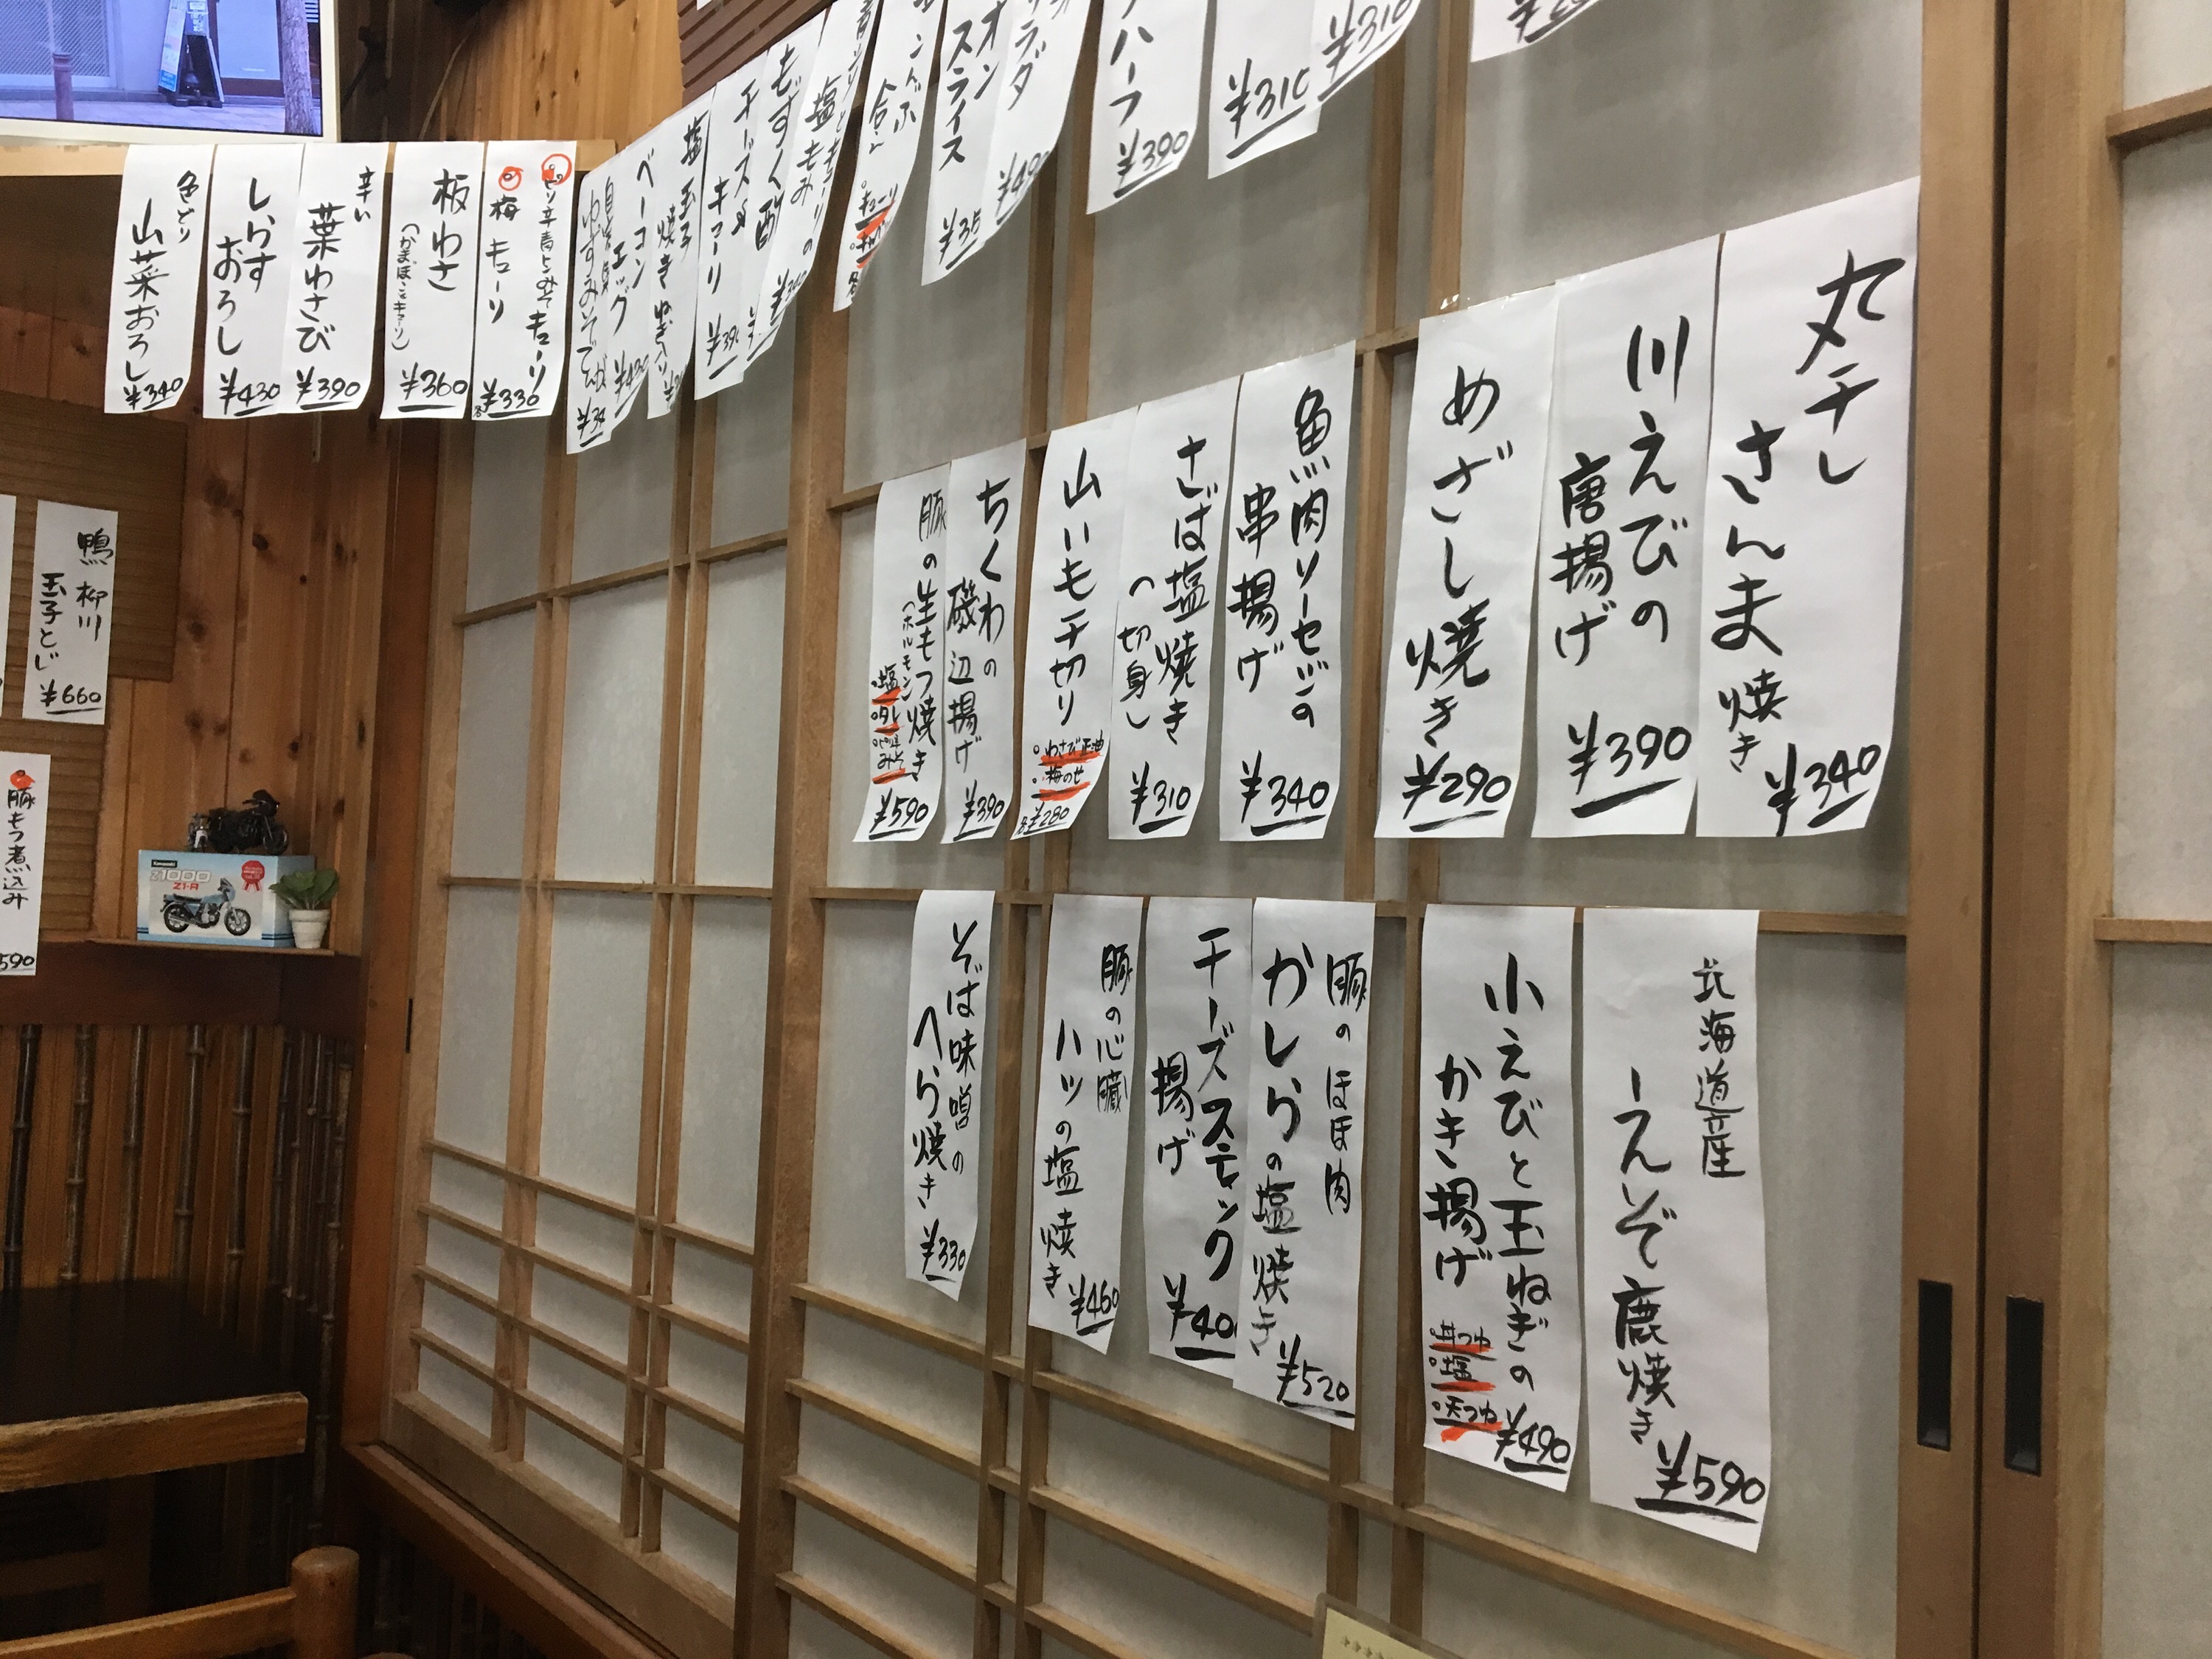 色どり
山菜おろし
¥340
しらす
おろし
¥430
辛い
葉わさび
¥390
板わさ
(かまぼことキューリ)
¥360
ピリ辛青とうみそキューリ
梅キューリ
各¥330
ベーコン
エッグ
塩
玉子
焼き
チーズ
キューリ
もずく酢
塩もみ
オン
スライス
ラダ
ハーフ
¥390
¥310
¥310
丸干し
さんま焼き
¥340
川えびの
唐揚げ
¥390
めざし焼き
¥290
魚肉ソーセージの
串揚げ
¥340
さば塩焼き
(切身)
¥310
山いも千切り
わさび正油
梅のせ
各¥280
ちくわの
磯辺揚げ
¥390
豚の生もつ焼き
(ホルモン)
塩
タレ
みそ
¥590
北海道産
えぞ鹿焼き
¥590
小えびと玉ねぎの
かき揚げ
丼つゆ
塩
天つゆ
¥490
豚のほほ肉
かしらの塩焼き
¥520
チーズスティック
揚げ
¥40
豚の心臓
ハツの塩焼き
¥460
そば味噌の
へら焼き
¥330
鴨柳川
玉子とじ
¥660
豚もつ煮込み
590
Kawasaki
Z1000
Z1-R